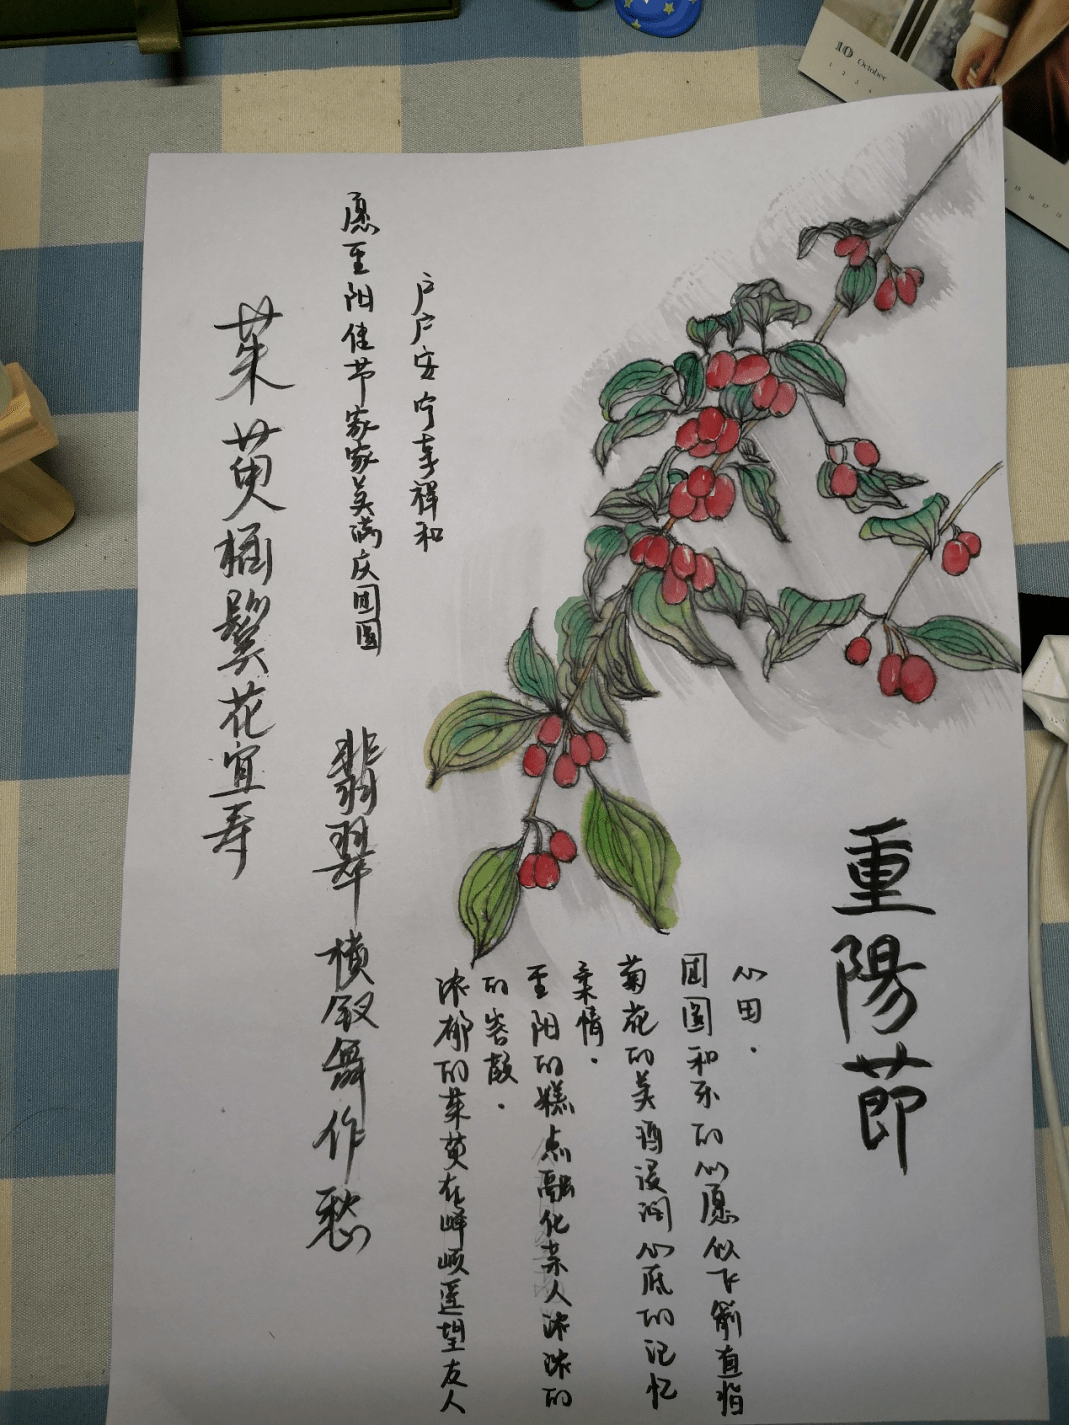 重陽節
茱萸插鬓花宜寿
翡翠横钗舞作愁
愿重阳佳节家家美满庆团圆
户户安宁幸祥和
浓郁的茱萸在峰顶遥望友人
的容颜.
重阳的糕点融化亲人浓浓的
柔情.
菊花的美酒浸润心底的记忆
团圆和乐的心愿似飞箭直指
心田.
10 October